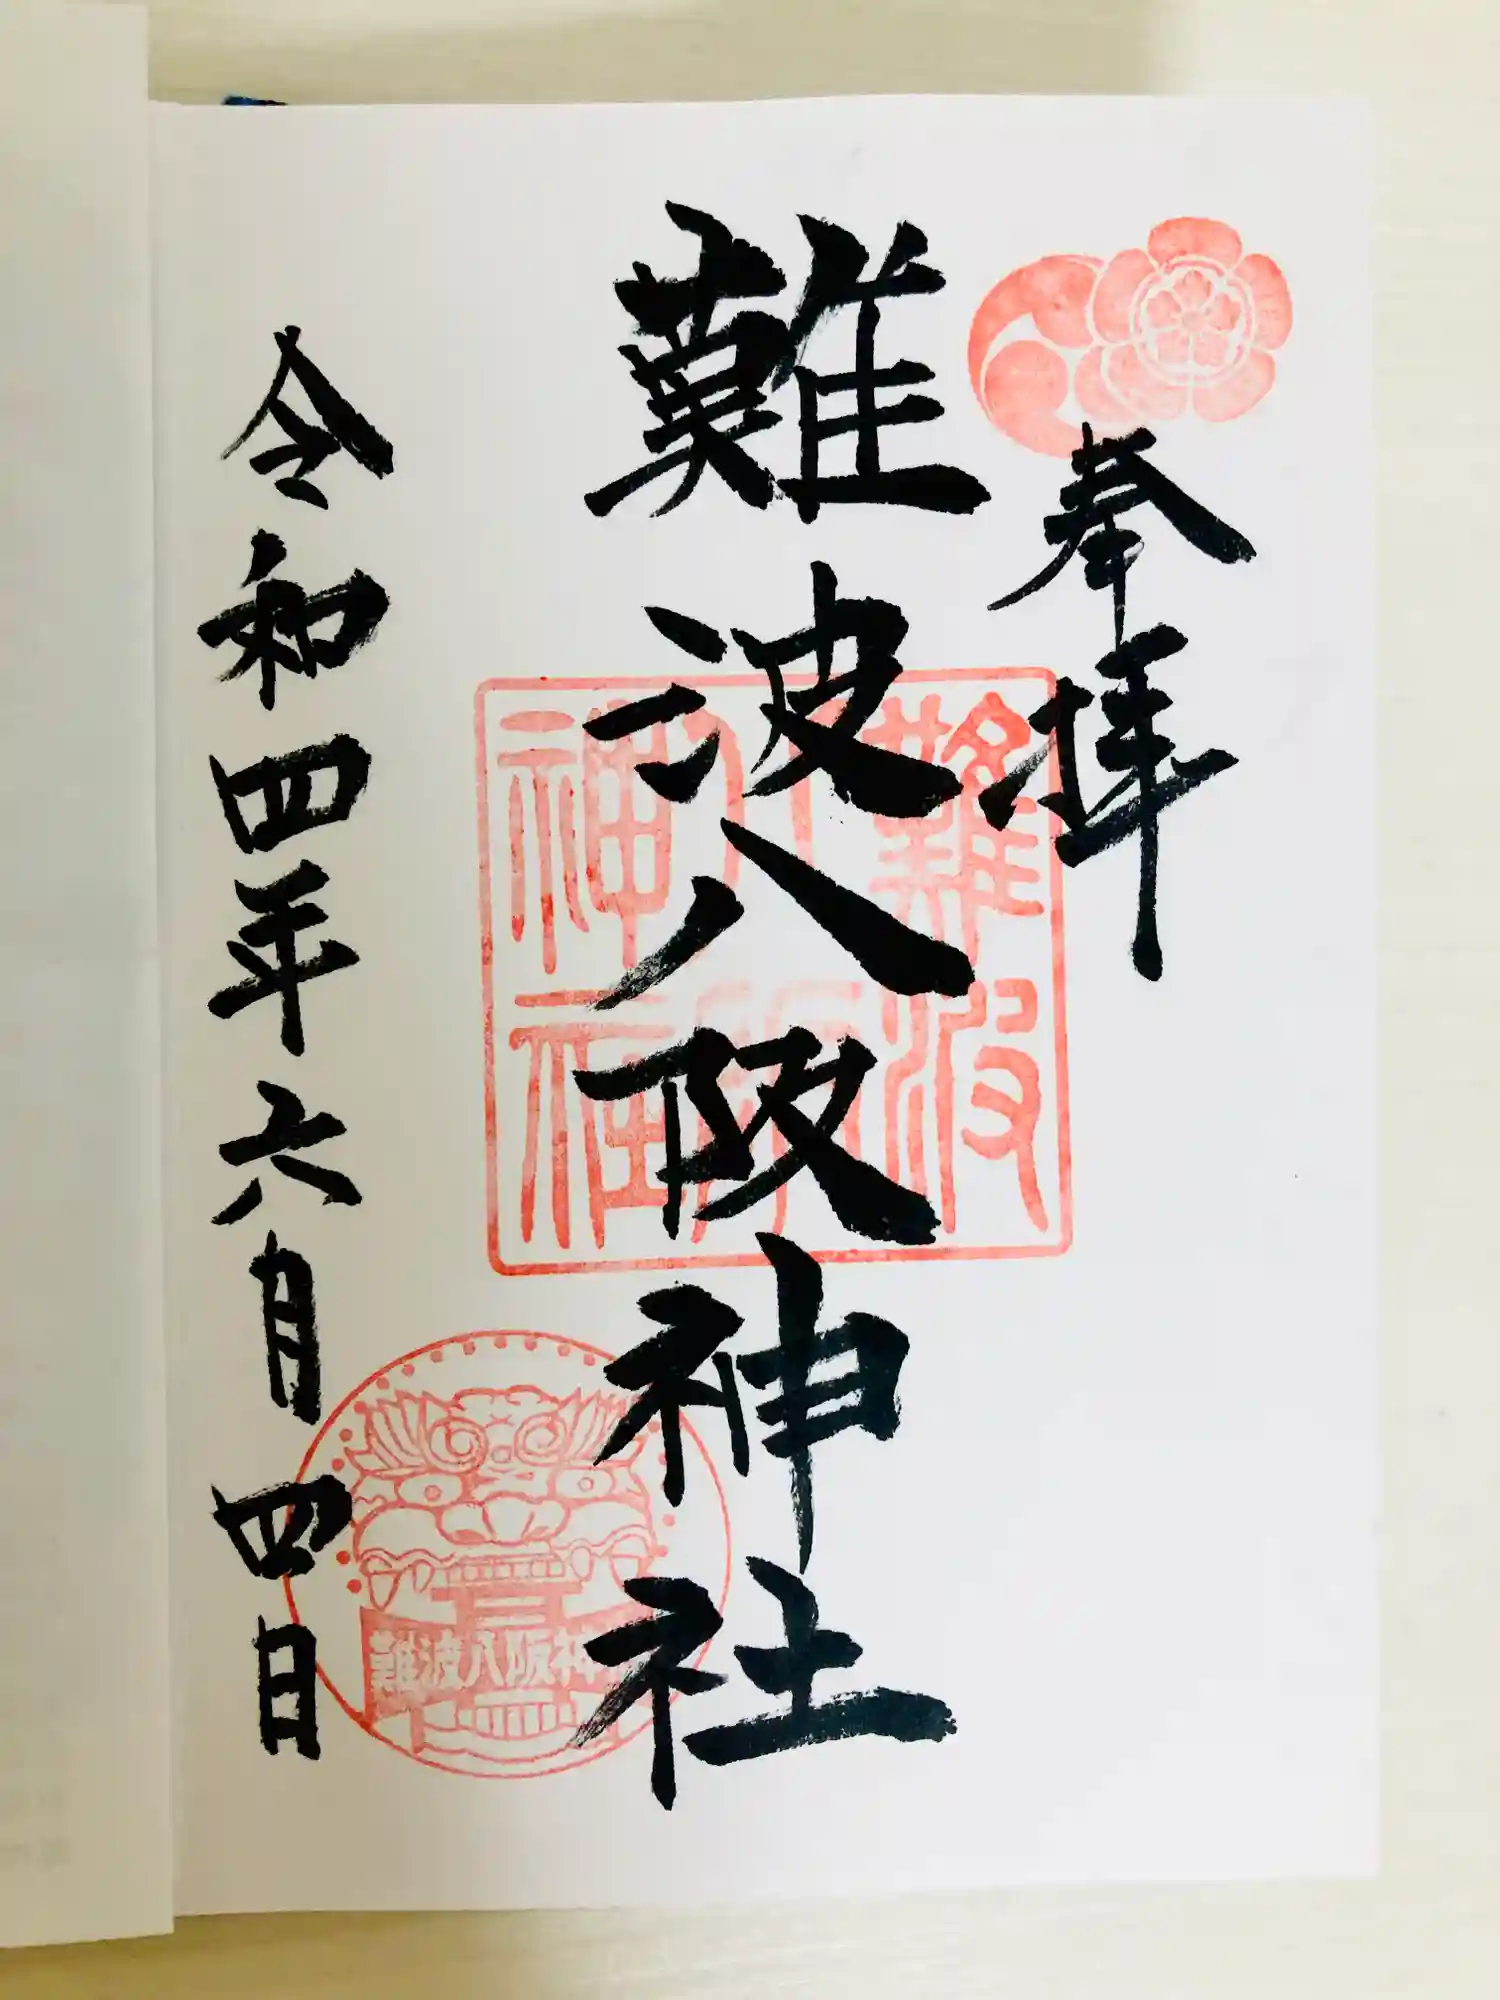 奉拝
難波八阪神社
難波
八阪
神社
令和四年六月四日
難波八阪神